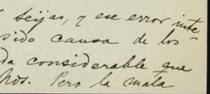 Seijas, y ese error inte-
sido causa de los
da considerable que
ños. Pero la mala